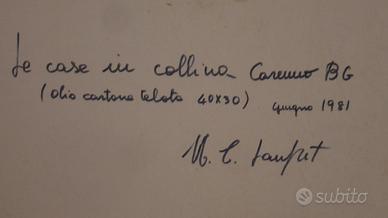 Le case in collina Carenno BG
(Olio cartone telato 40x30) giugno 1981
M. C.
subito